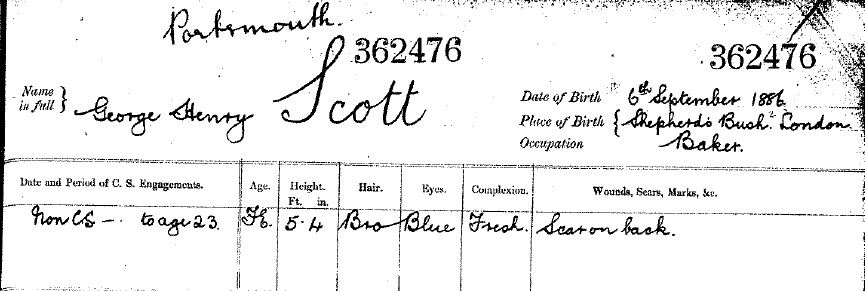 Portsmouth.
362476 362476
Name in full } George Henry Scott
Date of Birth 6th September 1886.
Place of Birth { Shepherds Bush. London
Occupation Baker.
Date and Period of C. S. Engagements. Age. Height. Ft. in. Hair. Eyes. Complexion. Wounds, Scars, Marks, &c.
Non CS - to age 23. 5.4 Bro Blue Fresh. Scar on back.